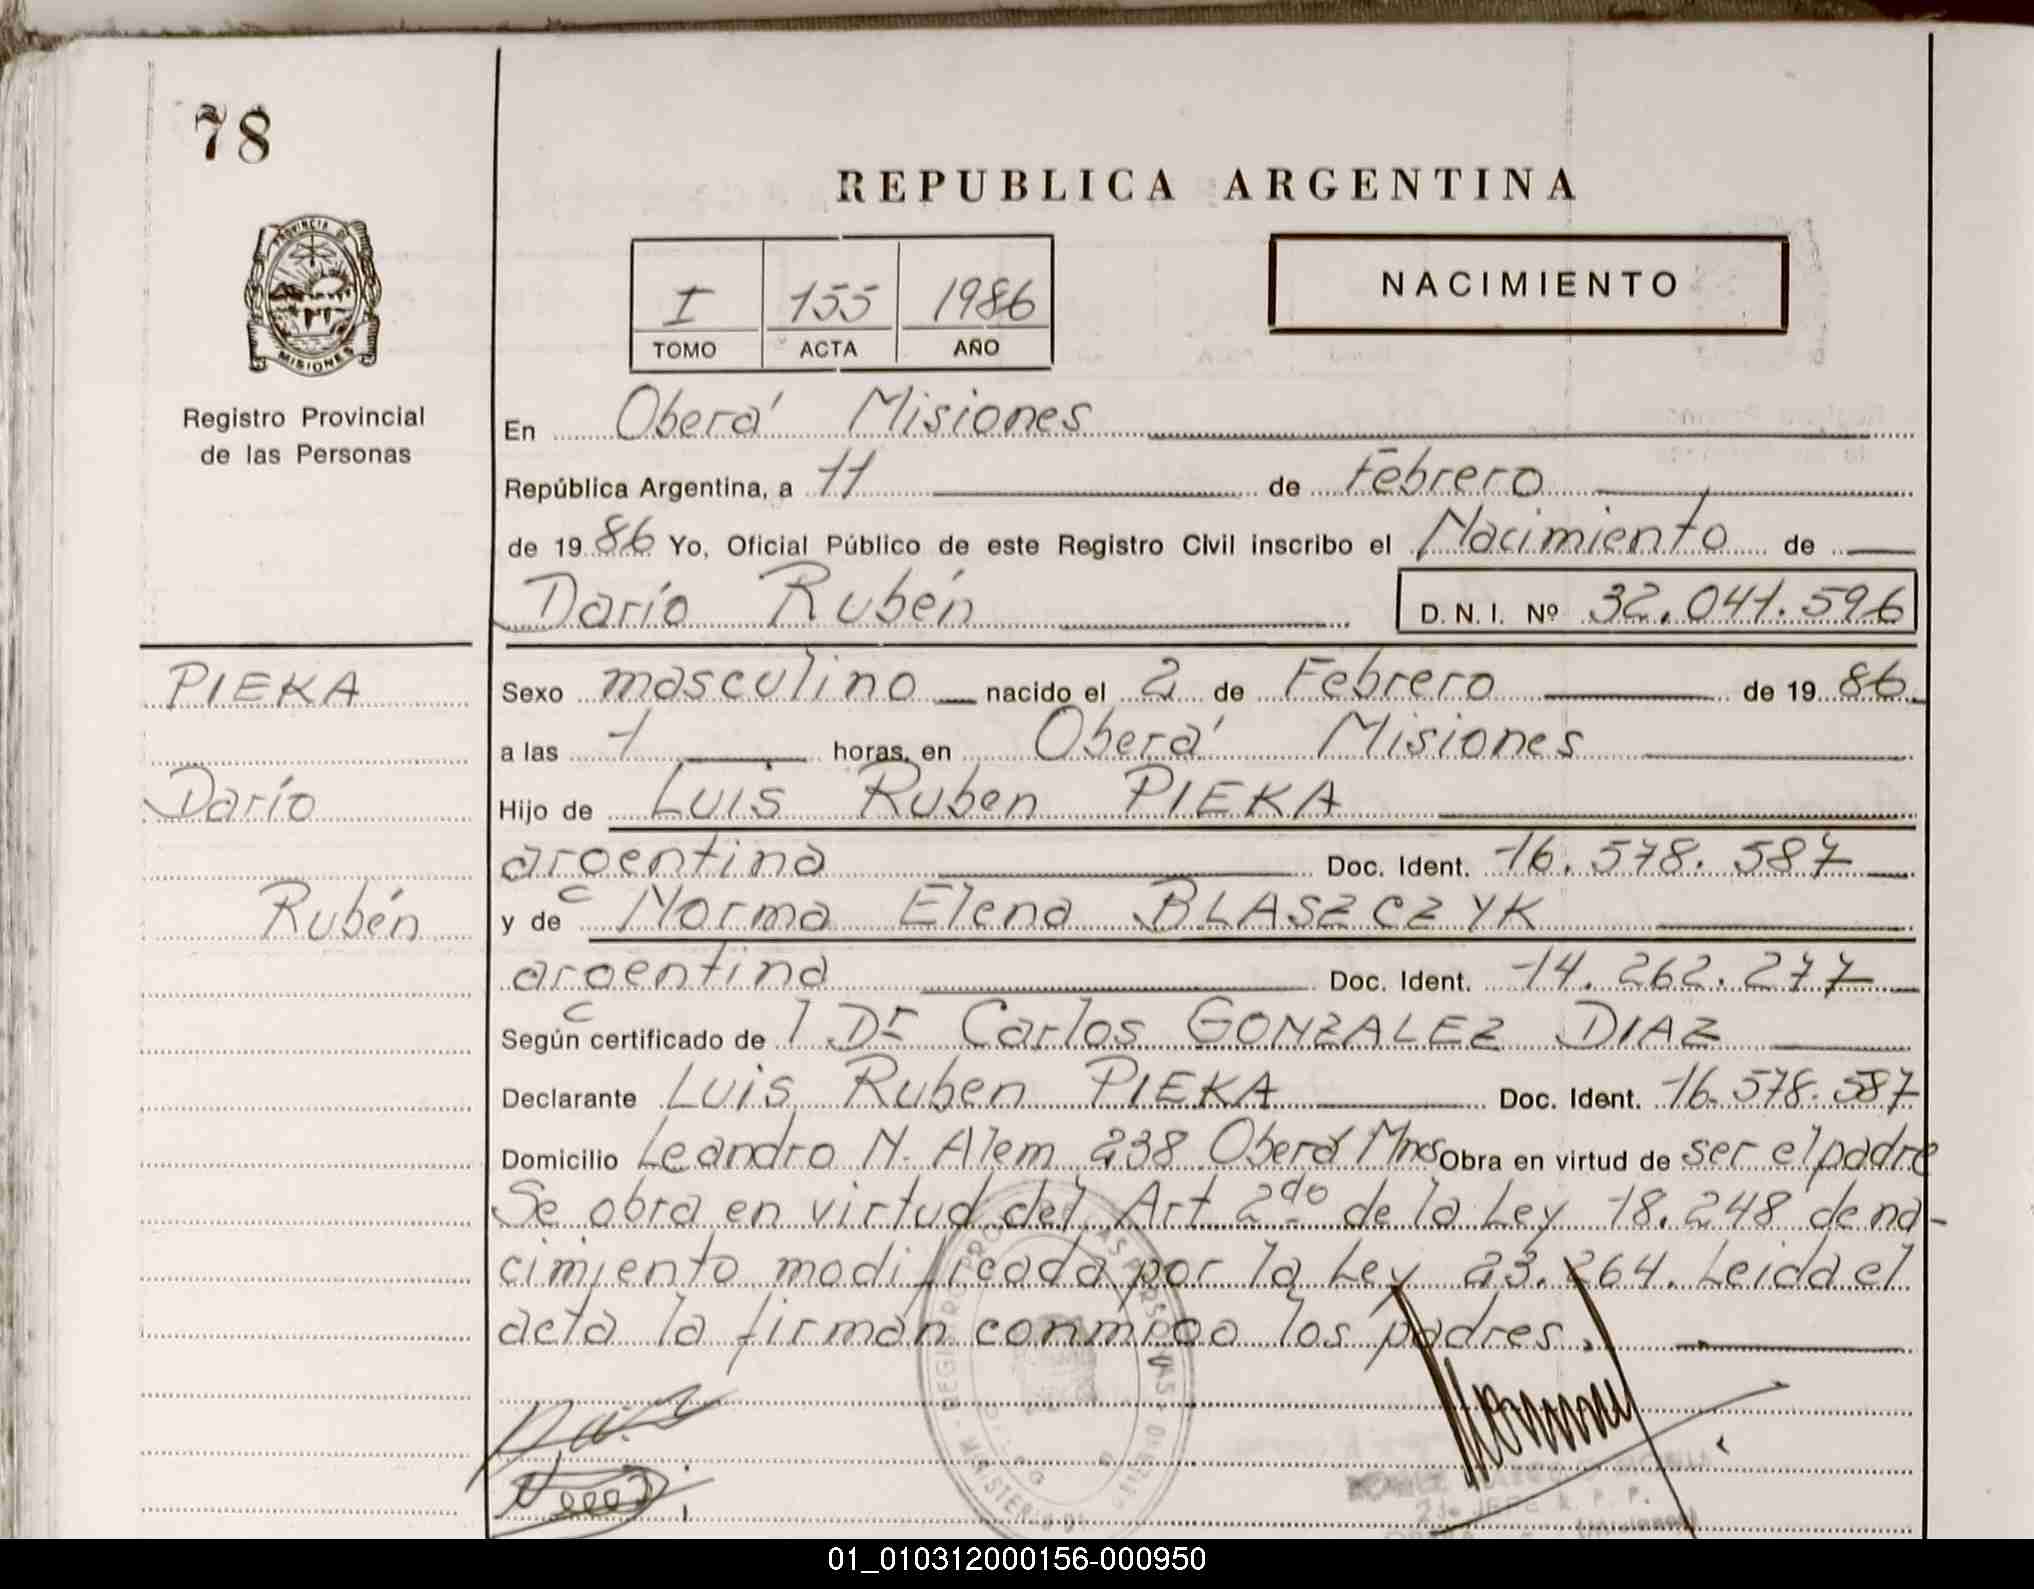 78
REPUBLICA ARGENTINA
PROVINCIA DE
MISIONES
I 155 1986
TOMO ACTA AÑO
NACIMIENTO
Registro Provincial
de las Personas
En Oberá Misiones
República Argentina, a 11 de Febrero
de 1986 Yo, Oficial Público de este Registro Civil inscribo el Nacimiento de
Darío Rubén D. N. I. Nº 32.041.596
PIEKA
Darío
Rubén
Sexo masculino nacido el 2 de Febrero de 1986
a las 1 horas, en Oberá Misiones
Hijo de Luis Ruben PIEKA
argentina Doc. Ident. 16.578.587
y de Norma Elena BLASZCZYK
argentina Doc. Ident. 14.262.277
Según certificado de l Dr Carlos GONZALEZ DIAZ
Declarante Luis Ruben PIEKA Doc. Ident. 16.578.587
Domicilio Leandro N. Alem 238 Oberá Mnes Obra en virtud de ser el padre
Se obra en virtud del Art 2do de la Ley 18.248 de na-
cimiento modificada por la Ley 23.264. Leida el
acta la firman conmigo los padres.
2do JEFE R. P. P.
(Misiones)
01_010312000156-000950